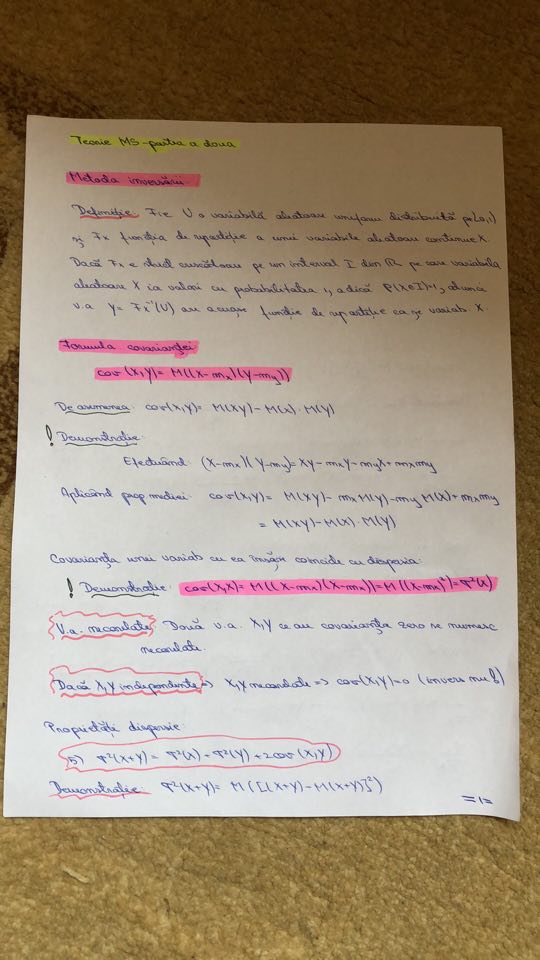 Teorie MS-partea a doua
Metoda inversării
Definiție. Fie U o variabilă aleatoare uniform distribuită pe [0,1)
și Fx funcția de repartiție a unei variabile aleatoare continue X.
Dacă Fx e strict crescătoare pe un interval I din R pe care variabila
aleatoare X ia valori cu probabilitatea 1, adică P(X∈I)=1, atunci
v.a Y = Fx⁻¹(U) au aceeași funcție de repartiție ca și variab. X.
Formula covarianței
cov(X,Y) = M((X-mx)(Y-my))
De asemenea: cov(X,Y) = M(XY) - M(X) · M(Y)
! Demonstrație:
Efectuând: (X-mx)(Y-my) = XY - mxY - myX + mxmy
Aplicând prop mediei: cov(X,Y) = M(XY) - mx M(Y) - my M(X) + mxmy
= M(XY) - M(X) · M(Y)
Covarianța unei variab cu ea însăși coincide cu dispersia:
! Demonstrație: cov(X,X) = M((X-mx)(X-mx)) = M((X-mx)²) = σ²(X)
V.a. necorelate: Două v.a. X,Y ce au covarianța zero se numesc
necorelate.
Dacă X,Y independente => X,Y necorelate => cov(X,Y)=0 (invers nu)
Proprietăți dispersie:
5) σ²(X+Y) = σ²(X) + σ²(Y) + 2cov(X,Y)
Demonstrație: σ²(X+Y) = M([(X+Y) - M(X+Y)]²)
=1=